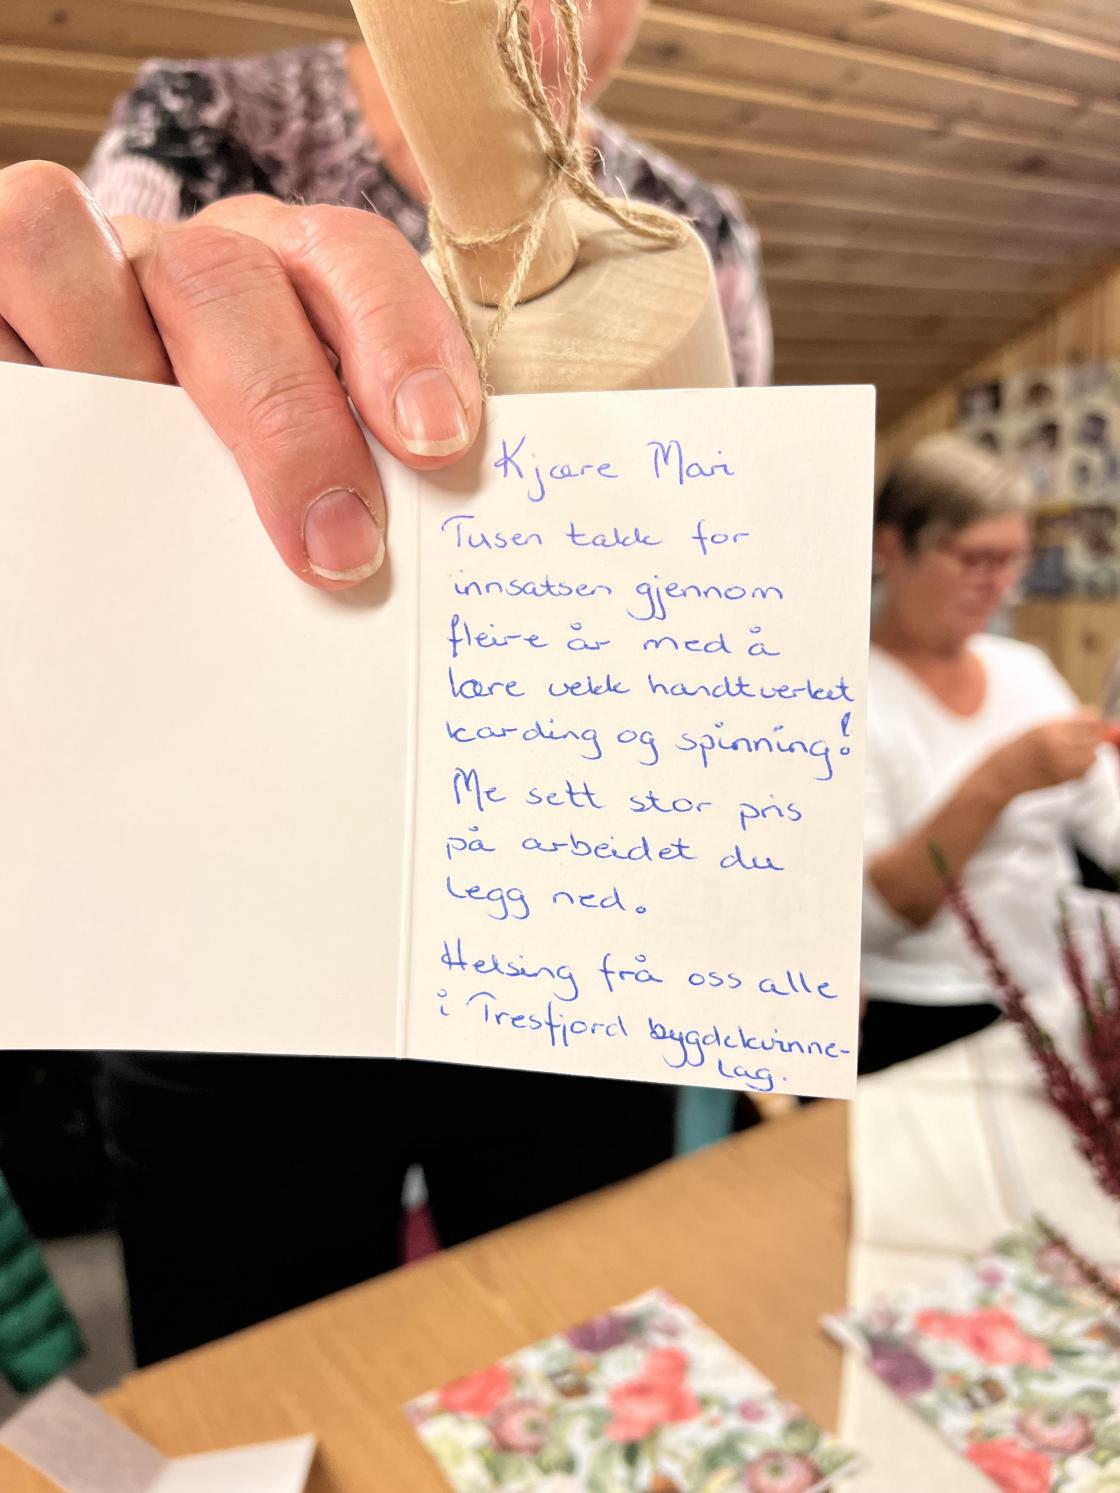 Kjære Mari
Tusen takk for
innsatsen gjennom
fleire år med å
lære vekk handtverket
karding og spinning!
Me sett stor pris
på arbeidet du
legg ned.
Helsing frå oss alle
i Tresfjord bygdekvinne-
lag.